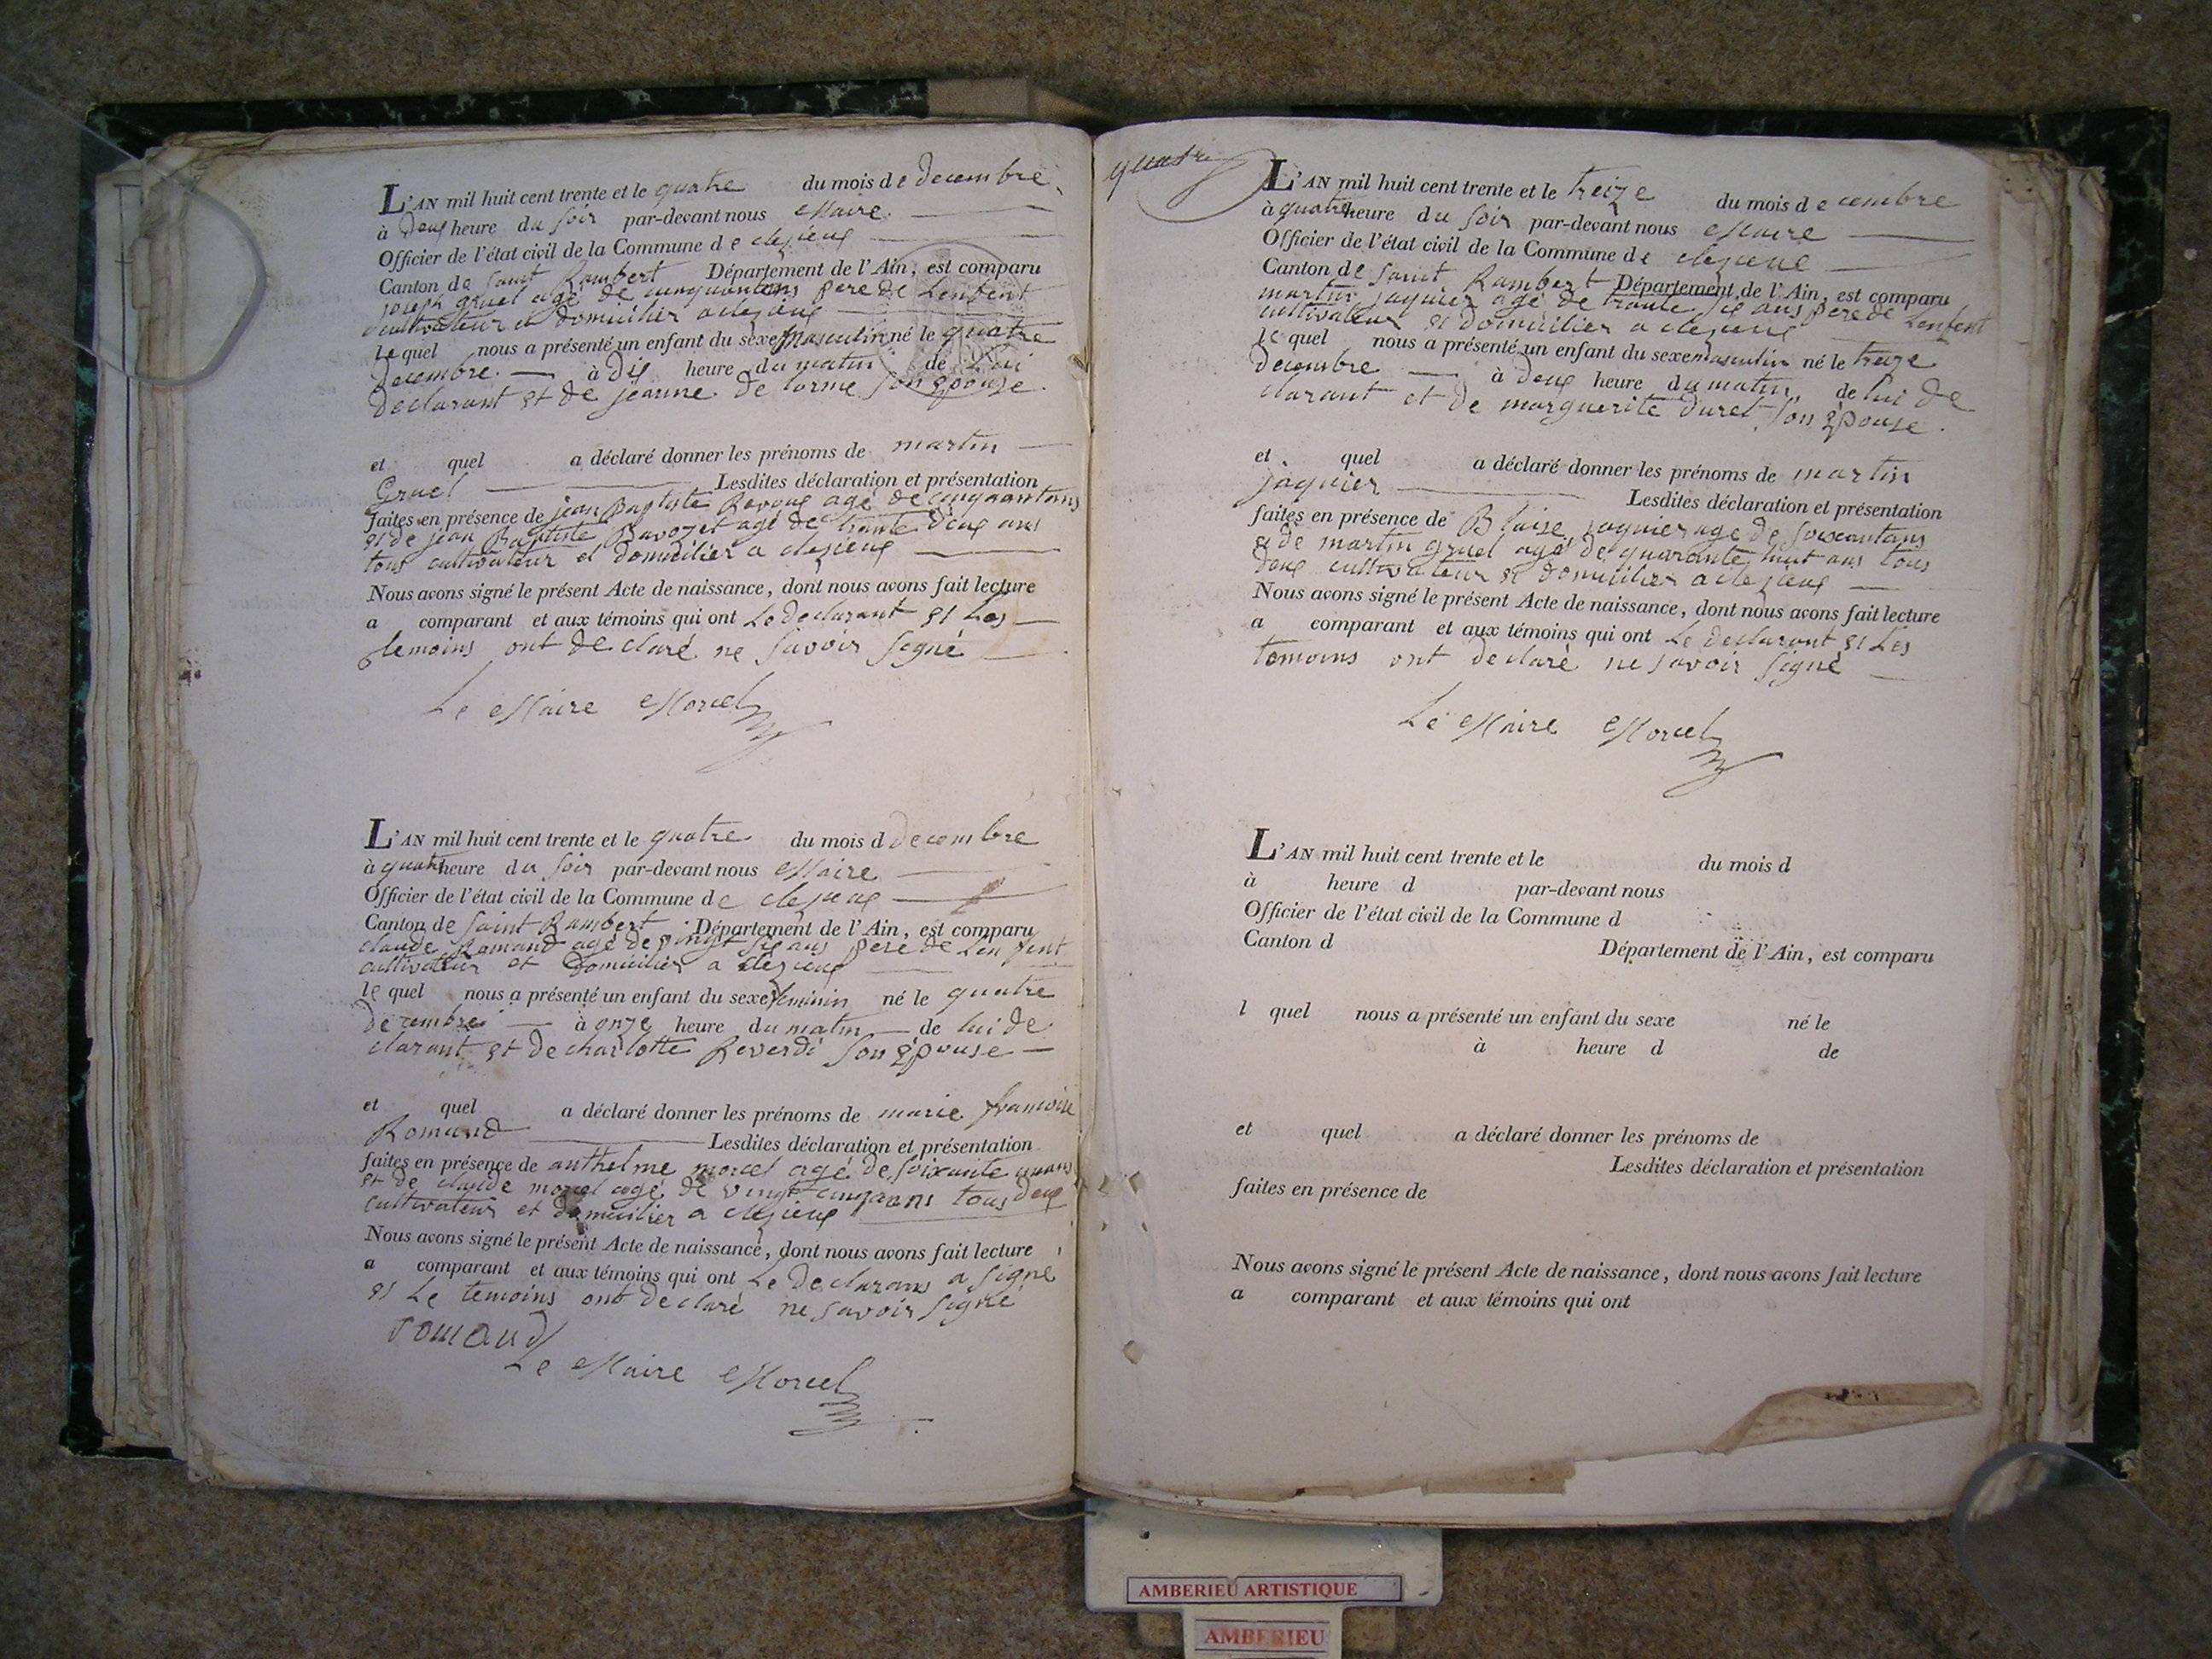 L'AN mil huit cent trente et le quatre du mois de decembre
à deux heure du soir par-devant nous Maire
Officier de l'état civil de la Commune de clezieux
Canton de saint Rambert Département de l'Ain, est comparu
joseph gruel agé de cinquantans pere de Lenfent
cultivateur et domicilier a clezieux
le quel nous a présenté un enfant du sexe masculin né le quatre
decembre à dix heure du matin de lui
declarant et de jeanne de lorme son épouse
et quel a déclaré donner les prénoms de martin
Gruel Lesdites déclaration et présentation
faites en présence de jean Baptiste agé de cinquantans
et de jean Baptiste agé de trante deux ans
tous cultivateur et domicilier a clezieux
Nous avons signé le présent Acte de naissance, dont nous avons fait lecture
a comparant et aux témoins qui ont Le declarant et Les
temoins ont declaré ne savoir signé
Le Maire Morcel
L'AN mil huit cent trente et le quatre du mois d decembre
à quatre heure du soir par-devant nous Maire
Officier de l'état civil de la Commune de clezieux
Canton de saint Rambert Département de l'Ain, est comparu
claude Romand agé de vingt six ans pere de Lenfent
cultivateur et domicilier a clezieux
le quel nous a présenté un enfant du sexe feminin né le quatre
decembre à onze heure du matin de lui de
clarant et de charlotte Reverdi son épouse
et quel a déclaré donner les prénoms de marie francoise
Romand Lesdites déclaration et présentation
faites en présence de anthelme morcel agé de soixante unans
et de claude morcel agé de vingt cinq ans tous deux
cultivateur et domicilier a clezieux
Nous avons signé le présent Acte de naissance, dont nous avons fait lecture
a comparant et aux témoins qui ont Le declarans a signé
et Le temoins ont declaré ne savoir signé
romand
Le Maire Morcel
quatre
L'AN mil huit cent trente et le treize du mois decembre
à quatre heure du soir par-devant nous Maire
Officier de l'état civil de la Commune de clezieux
Canton de saint Rambert Département de l'Ain, est comparu
martin jaquier agé de trante six ans pere de Lenfent
cultivateur et domicilier a clezieux
le quel nous a présenté un enfant du sexe masculin né le treize
decembre à deux heure du matin de lui de
clarant et de marguerite duret son épouse
et quel a déclaré donner les prénoms de martin
jaquier Lesdites déclaration et présentation
faites en présence de Blaise jaquier agé de soixantans
et de martin gruel agé de quarante huit ans tous
deux cultivateur et domicilier a clezieux
Nous avons signé le présent Acte de naissance, dont nous avons fait lecture
a comparant et aux témoins qui ont Le declarant et Les
temoins ont declaré ne savoir signé
Le Maire Morcel
L'AN mil huit cent trente et le du mois d
à heure d par-devant nous
Officier de l'état civil de la Commune d
Canton d Département de l'Ain, est comparu
l quel nous a présenté un enfant du sexe né le
à heure d de
et quel a déclaré donner les prénoms de
Lesdites déclaration et présentation
faites en présence de
Nous avons signé le présent Acte de naissance, dont nous avons fait lecture
a comparant et aux témoins qui ont
AMBERIEU ARTISTIQUE
AMBERIEU